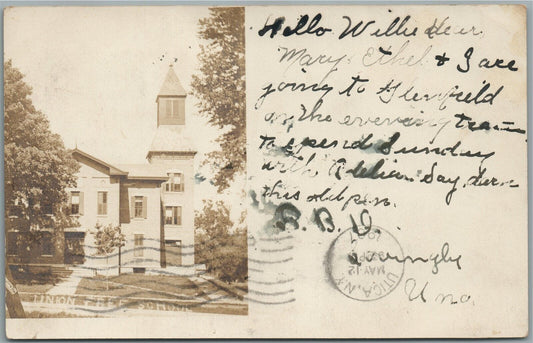 Hello Willie dear.
Mary, Ethel & I are
going to Glenfield
on the evening train
to spend Sunday
with Adelia. Say, darn
this old pen.
B. B. D.
Lovingly
Una.
UTICA, N.Y.
MAY 12
UNION FREE SCHOOL